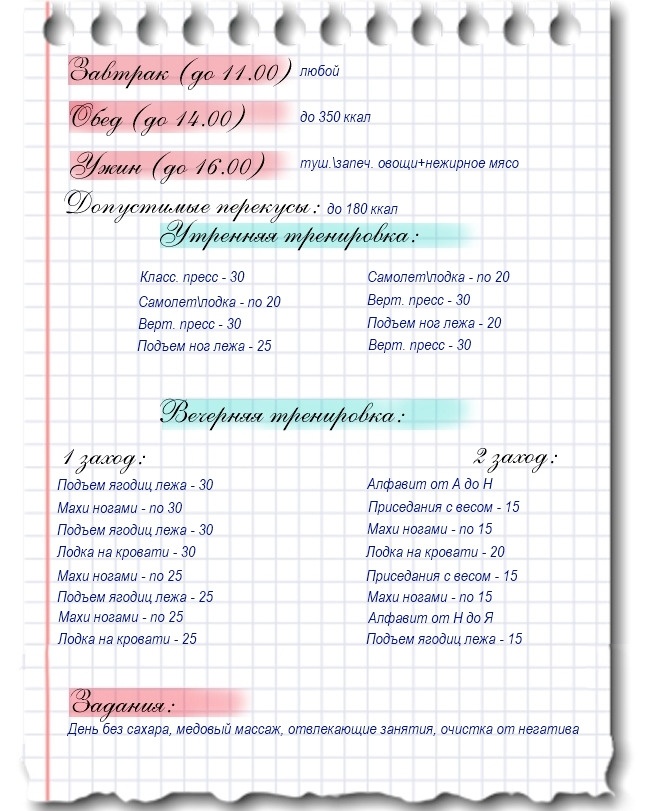 Завтрак (до 11.00) любой
Обед (до 14.00) до 350 ккал
Ужин (до 16.00) туш.\запеч. овощи+нежирное мясо
Допустимые перекусы: до 180 ккал
Утренняя тренировка:
Класс. пресс - 30
Самолет\лодка - по 20
Верт. пресс - 30
Подъем ног лежа - 25
Самолет\лодка - по 20
Верт. пресс - 30
Подъем ног лежа - 20
Верт. пресс - 30
Вечерняя тренировка:
1 заход:
Подъем ягодиц лежа - 30
Махи ногами - по 30
Подъем ягодиц лежа - 30
Лодка на кровати - 30
Махи ногами - по 25
Подъем ягодиц лежа - 25
Махи ногами - по 25
Лодка на кровати - 25
2 заход:
Алфавит от А до Н
Приседания с весом - 15
Махи ногами - по 15
Лодка на кровати - 20
Приседания с весом - 15
Махи ногами - по 15
Алфавит от Н до Я
Подъем ягодиц лежа - 15
Задания:
День без сахара, медовый массаж, отвлекающие занятия, очистка от негатива